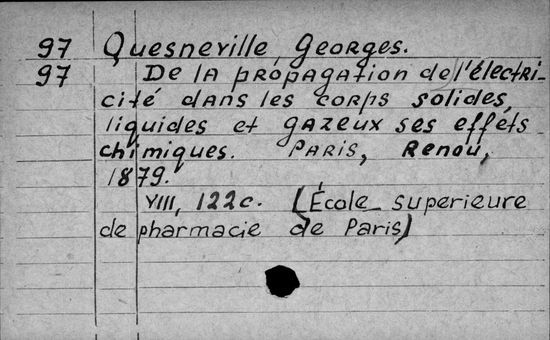 97 Quesneville, Georges.
97 De la propagation de l'électri-
cité dans les corps solides,
liquides et gazeux ses effets
chimiques. Paris, Renou,
1879.
VIII, 122c. (École superieure
de pharmacie de Paris)